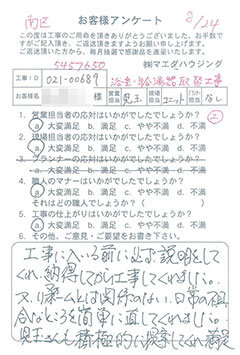 南区
お客様アンケート
8/24
この度は工事のご用命を頂きありがとうございました。お手数で
すがご記入頂き、ご返送頂きますようお願い申し上げます。
ご返送頂いた方から、毎月抽選で感謝品を進呈いたします。
5457650
㈱マエダハウジング
工事ID
021-00689
浴室・給湯器取替工事
お客様名
様
営業担当
児玉
現場担当
ユニット
なし
1. 営業担当者の応対はいかがでしたでしょうか?
ⓐ大変満足 b. 満足 c. やや不満 d. 不満
2. 現場担当者の応対はいかがでしたでしょうか?
ⓐ大変満足 b. 満足 c. やや不満 d. 不満
3. プランナーの応対はいかがでしたでしょうか?
a. 大変満足 b. 満足 c. やや不満 d. 不満
4. 職人のマナーはいかがでしたでしょうか?
ⓐ大変満足 b. 満足 c. やや不満 d. 不満
それはどの職人でしょうか?(
5. 工事の仕上がりはいかがでしたでしょうか?
ⓐ大変満足 b. 満足 c. やや不満 d. 不満
6. その他、ご意見・ご要望をお書き下さい。
工事に入る前に必ず説明をして
くれ、納得してから工事してくれました。
又、リホームとは関係のない、日常の不具
合なところを簡単に直してくれました。
児玉さんも積極的に提案してくれ